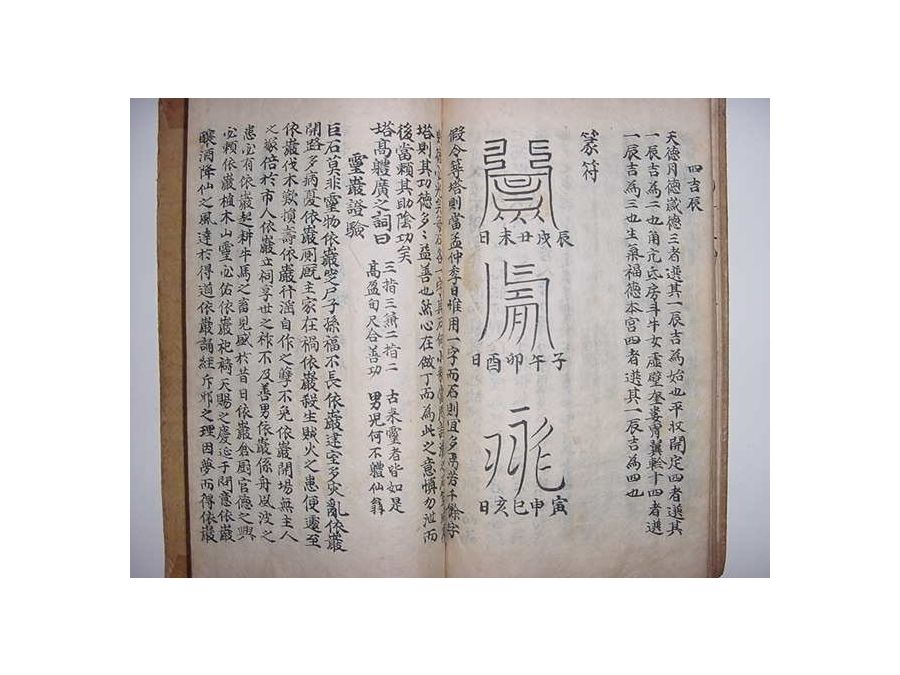 四吉辰
天德月德歲德三者選其一辰吉為始也平收開定四者選其
一辰吉為二也角亢氐房斗牛女虛壁奎婁胃翼軫十四者選
一辰吉為三也生氣福德本宮四者選其一辰吉為四也
篆符
辰戌丑未日
子午卯酉日
寅申巳亥日
假令薄塔則當孟仲季日惟用一字而石則宜多
塔則其功德多益善也然心在做丁而為此之意慎勿泄而
後當賴其助陰功矣
塔高體廣之詞曰
三指三兼二指二 古來靈者皆如是
高盈旬尺合善功 男兒何不體仙翁
靈巖證驗
巨石莫非靈物依巖哭尸子孫福不長依巖建室多灾亂依巖
開路多病憂依巖則厩主家在禍依巖殺生賊火之患便還至
依巖伐木歎損壽依巖行淫自作之孽不免依巖開場無主人
之塚倍於市人依巖立祠孚世之祚不及善男依巖係舟風波之
患必有依巖起之耕牛馬之畜見感於昔日依巖倉厨官德之興
必賴依巖植木山靈必佑依巖祀禱天賜之慶迄于問憲依巖
釀酒降仙之風達於得道依巖誦經斥邪之理因夢而得依巖